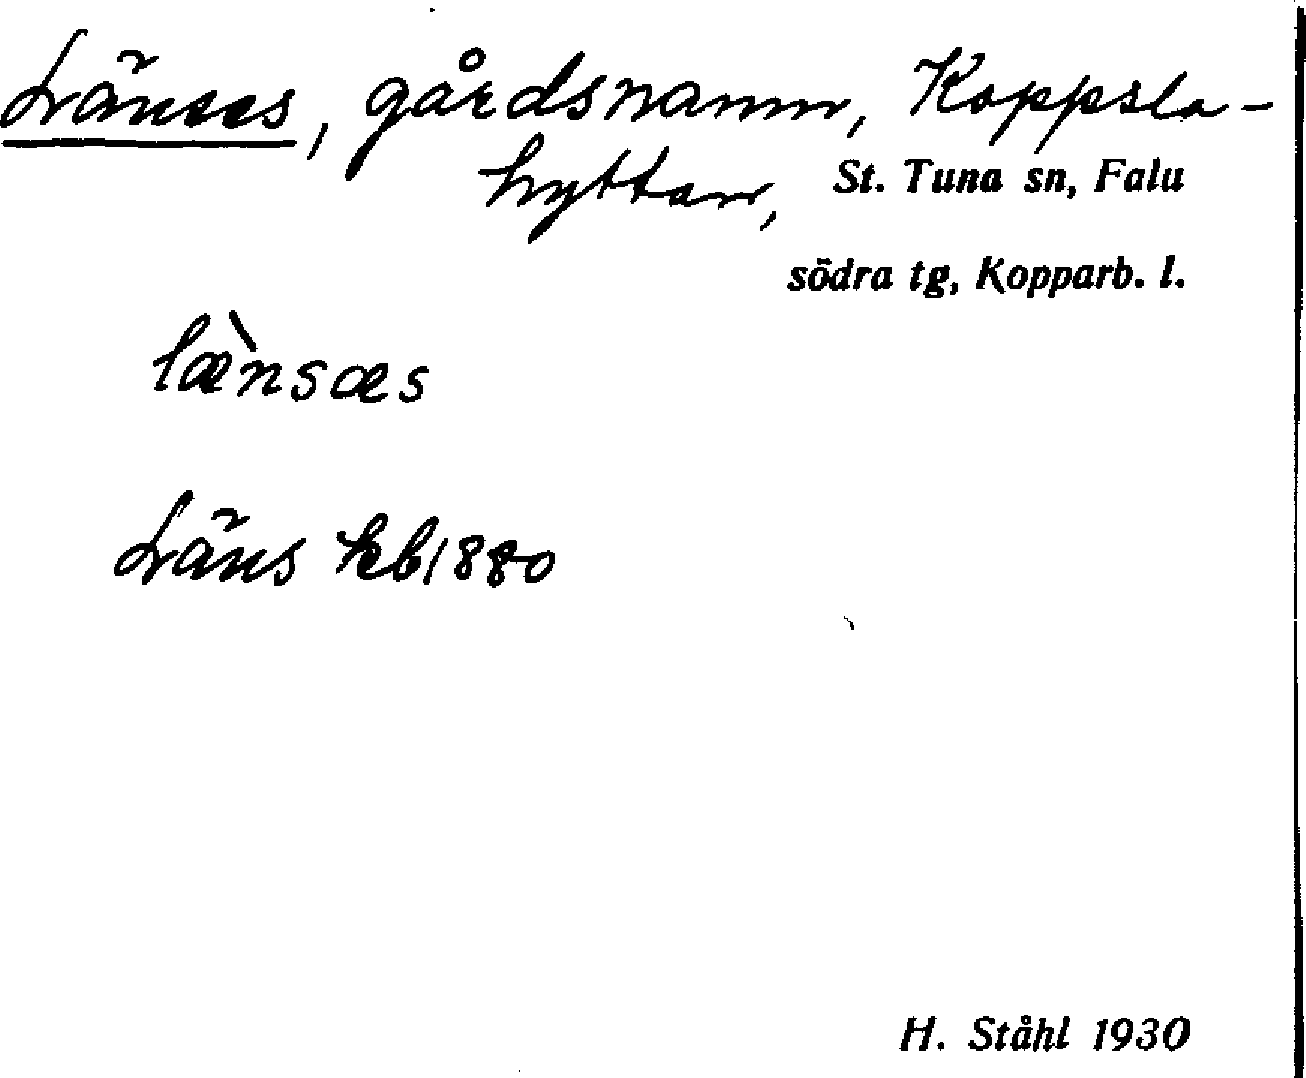 Länses, gårdsnamn, Koppsla-
hyttan, St. Tuna sn, Falu
södra tg, Kopparb. l.
læ̀nsæs
Läns kb 1880
H. Ståhl 1930